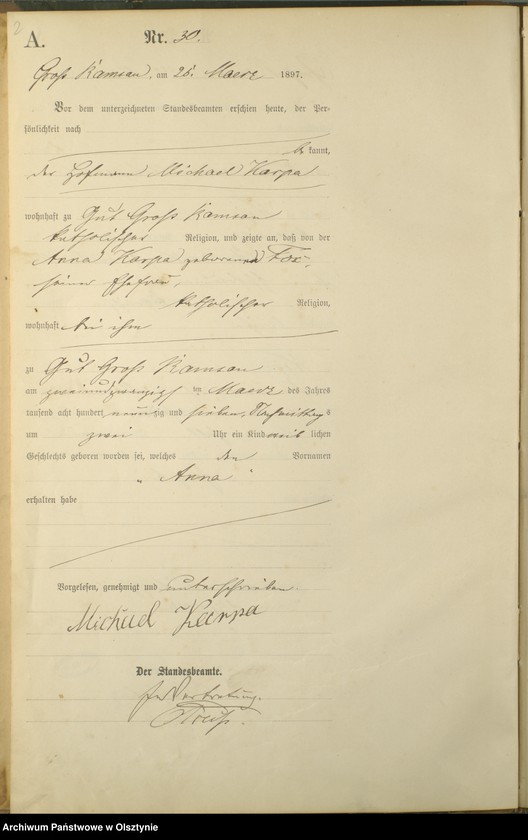 2
A. Nr. 30.
Groß Ramsau, am 26. Maerz 1897.
Vor dem unterzeichneten Standesbeamten erschien heute, der Per-
sönlichkeit nach
be kannt,
der Hofmann Michael Karpa
wohnhaft zu Gut Groß Ramsau
katholischer Religion, und zeigte an, daß von der
Anna Karpa geborenen Fox,
seiner Ehefrau,
katholischer Religion,
wohnhaft bei ihm
zu Gut Groß Ramsau
am zweiundzwanzigsten Maerz des Jahres
tausend acht hundert neunzig und sieben, Nachmittags
um zwei Uhr ein Kind weib lichen
Geschlechts geboren worden sei, welches den Vornamen
„Anna“
erhalten habe
Vorgelesen, genehmigt und unterschrieben.
Michael Karpa
Der Standesbeamte.
In Vertretung.
Archiwum Państwowe w Olsztynie